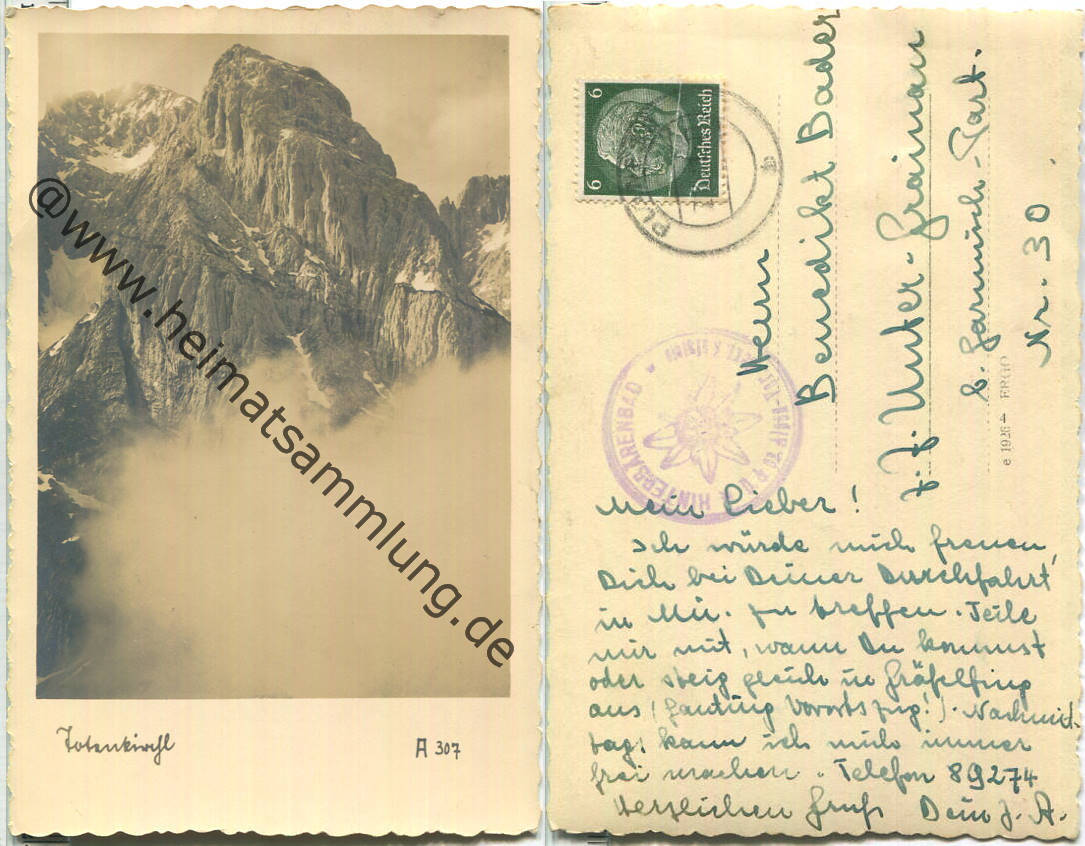 @www.heimatsammlung.de
Totenkirchl
A 307
6 6
Deutsches Reich
HINTERBÄRENBAD
Herrn
Benedikt Bader
z. Z. Unter-Grainau
b. Garmisch-Part.
Nr. 30
e 1926 + ERGO
Mein Lieber!
Ich würde mich freuen,
Dich bei Deiner Durchfahrt
in Mü. zu treffen. Teile
mir mit, wann Du kommst
oder steig gleich in Gräfelfing
aus (Gauting Vorortszug!). Nachmit-
tags kann ich mich immer
frei machen. Telefon 89274
Herzlichen Gruß Dein J. A.